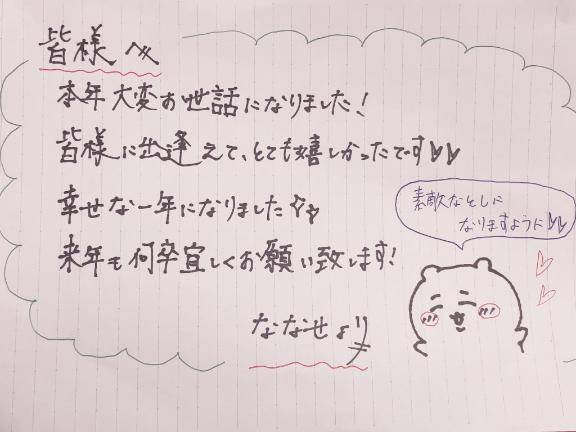 皆様へ
本年大変お世話になりました！
皆様に出逢えて、とても嬉しかったです♡♡
幸せな一年になりました♡♡
来年も何卒宜しくお願い致します！
ななせより
素敵なとしに
なりますように♡♡